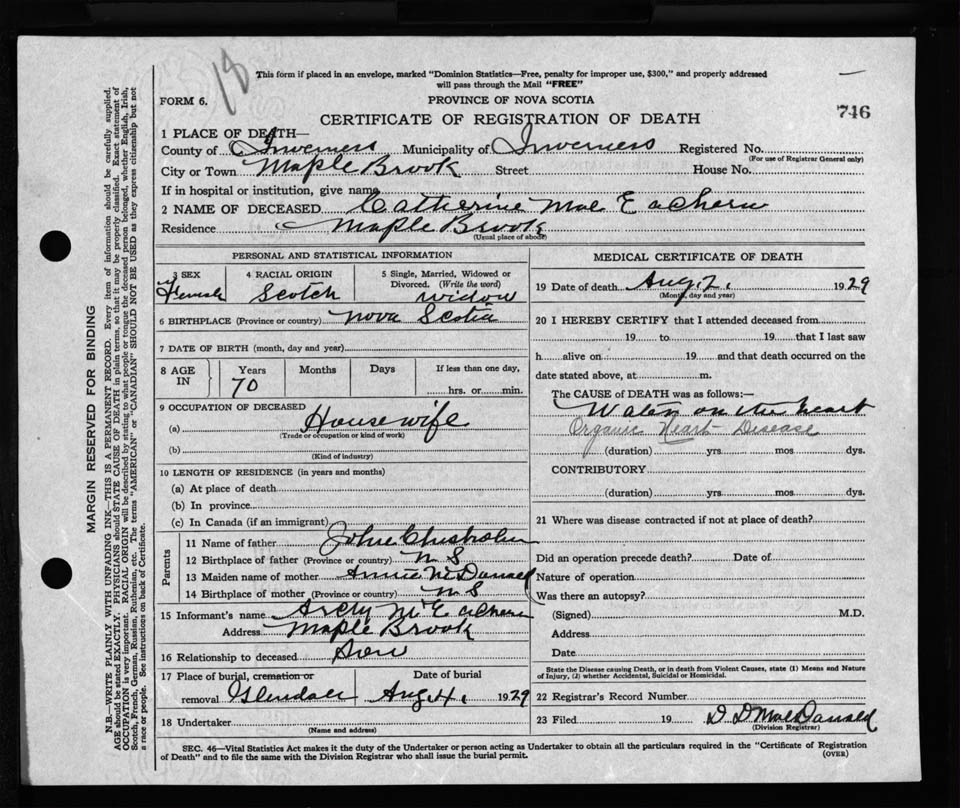 18
This form if placed in an envelope, marked "Dominion Statistics—Free, penalty for improper use, $300," and properly addressed
will pass through the Mail "FREE"
FORM 6.
PROVINCE OF NOVA SCOTIA
CERTIFICATE OF REGISTRATION OF DEATH
746
1 PLACE OF DEATH—
County of Inverness Municipality of Inverness Registered No.
(For use of Registrar General only)
City or Town Maple Brook Street House No.
If in hospital or institution, give name
2 NAME OF DECEASED Catherine Mac Eachern
Residence Maple Brook
(Usual place of abode)
PERSONAL AND STATISTICAL INFORMATION
3 SEX Female
4 RACIAL ORIGIN Scotch
5 Single, Married, Widowed or
Divorced. (Write the word)
widow
6 BIRTHPLACE (Province or country) Nova Scotia
7 DATE OF BIRTH (month, day and year)
8 AGE IN Years 70 Months Days If less than one day,
hrs. or min.
9 OCCUPATION OF DECEASED
(a) Housewife
(Trade or occupation or kind of work)
(b)
(Kind of industry)
10 LENGTH OF RESIDENCE (in years and months)
(a) At place of death
(b) In province
(c) In Canada (if an immigrant)
Parents
11 Name of father John Chisholm
12 Birthplace of father (Province or country) N S
13 Maiden name of mother Annie McDonald
14 Birthplace of mother (Province or country) N S
15 Informant's name McEachern
Address Maple Brook
16 Relationship to deceased Son
17 Place of burial, cremation or
removal Glendale
Date of burial
Aug 4, 1929
18 Undertaker
(Name and address)
MEDICAL CERTIFICATE OF DEATH
19 Date of death Aug. 2, 1929
(Month, day and year)
20 I HEREBY CERTIFY that I attended deceased from
19 to 19 that I last saw
h alive on 19 and that death occurred on the
date stated above, at m.
The CAUSE of DEATH was as follows:—
Water on the heart
Organic Heart Disease
(duration) yrs. mos. dys.
CONTRIBUTORY
(duration) yrs. mos. dys.
21 Where was disease contracted if not at place of death?
Did an operation precede death? Date of
Nature of operation
Was there an autopsy?
(Signed) M.D.
Address
Date
State the Disease causing Death, or in death from Violent Causes, state (1) Means and Nature
of Injury, (2) whether Accidental, Suicidal or Homicidal.
22 Registrar's Record Number
23 Filed 19 D. D MacDonald
(Division Registrar)
SEC. 46—Vital Statistics Act makes it the duty of the Undertaker or person acting as Undertaker to obtain all the particulars required in the "Certificate of Registration
of Death" and to file the same with the Division Registrar who shall issue the burial permit.
(OVER)
MARGIN RESERVED FOR BINDING
N.B.—WRITE PLAINLY WITH UNFADING INK—THIS IS A PERMANENT RECORD. Every item of information should be carefully supplied.
AGE should be stated EXACTLY. PHYSICIANS should STATE CAUSE OF DEATH in plain terms, so that it may be properly classified. Exact statement of
OCCUPATION is very important. RACIAL ORIGIN will be described by stating to what people or tongue the deceased person belonged, whether English, Irish,
Scotch, French, German, Russian, Ruthenian, etc. The terms "AMERICAN" or "CANADIAN" SHOULD NOT BE USED as they express citizenship but not
a race or people. See instructions on back of Certificate.